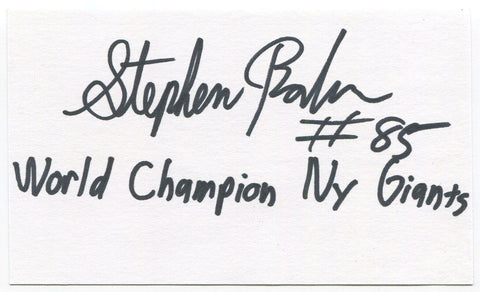 Stephen Baker
#85
World Champion Ny Giants